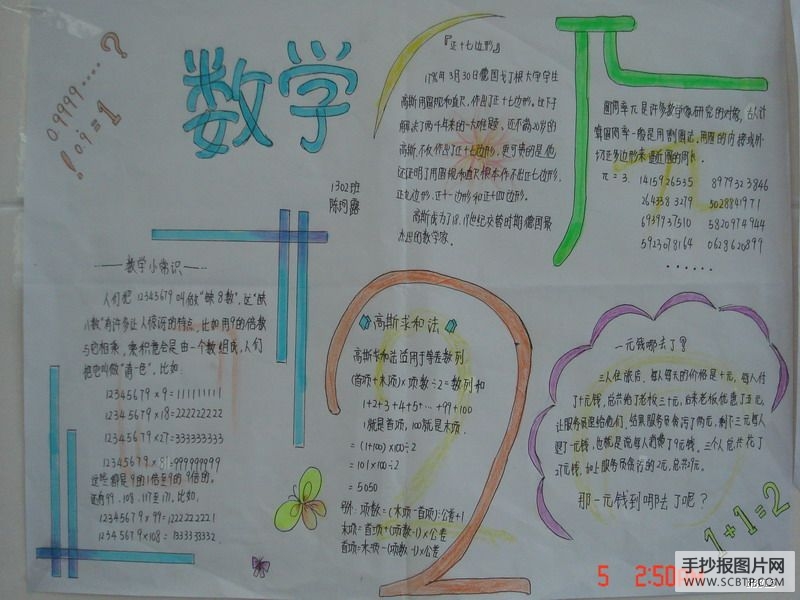 0.9999……?
0.9=1
!
数学
1302班
陈珂露
『正十七边形』
1796年3月30日德国哥丁根大学学生
高斯用圆规和直尺,作出了正十七边形。这下子
解决了两千年来的一大难题。还不满20岁的
高斯,不仅作出了正十七边形,更可贵的是他
还证明了用圆规和直尺根本作不出正七边形,
正九边形,正十一边形和正十四边形。
高斯成为了18、19世纪交替时期德国最
杰出的数学家。
圆周率π是许多数学家研究的对象,古人计
算圆周率一般是用割圆法,用圆的内接或外
切正多边形来逼近圆的周长。
π=3. 1415926535 8979323846
2643383279 5028841971
6939937510 5820974944
5923078164 0628620899
······
——数学小常识——
人们把12345679叫做“缺8数”,这“缺
8数”有许多让人惊讶的特点,比如用9的倍数
与它相乘,乘积竟会是由一个数组成,人们
把它叫做“清一色”,比如:
12345679×9=111111111
12345679×18=222222222
12345679×27=333333333
12345679×81=999999999
这些都是9的1倍至9的9倍的。
还有99、108、117至171,比如:
12345679×99=1222222221
12345679×108=1333333332
高斯求和法
高斯求和法适用于等差数列
(首项+末项)×项数÷2=数列和
1+2+3+4+5+…+99+100
1就是首项,100就是末项
=(1+100)×100÷2
=101×100÷2
=5050
另外:项数=(末项-首项)÷公差+1
末项=首项+(项数-1)×公差
首项=末项-(项数-1)×公差
一元钱哪去了?
三人住旅店,每人每天的价格是十元,每人付
了十元钱,总共给了老板三十元,后来老板优惠了五元,
让服务员退给他们,结果服务员贪污了两元,剩下三元每人
退了一元钱,也就是说每人消费了9元钱。三个人总共花了
27元钱,加上服务员贪污的2元,总共29元。
那一元钱到哪去了呢?
1+1=2
5 2:50
手抄报图片网
WWW.SCBTP.COM